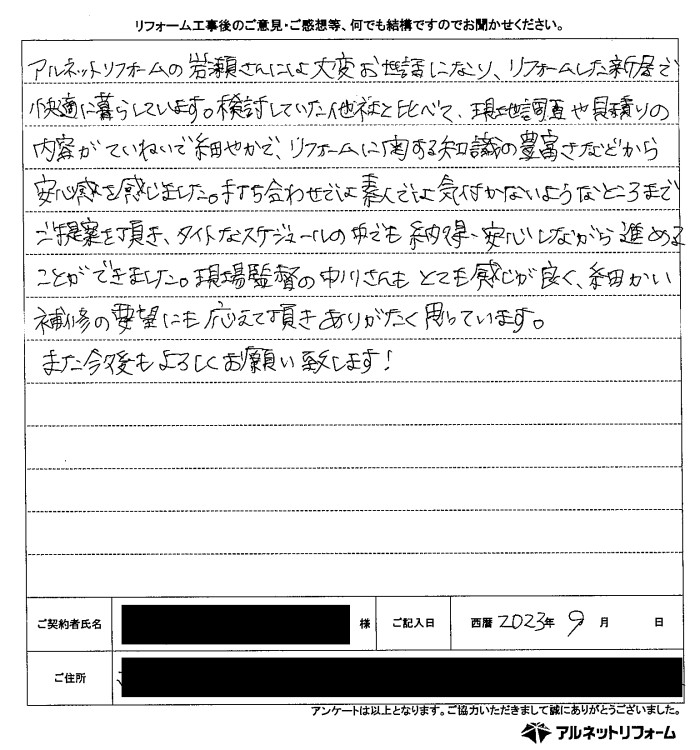 リフォーム工事後のご意見・ご感想等、何でも結構ですのでお聞かせください。
アルネットリフォームの岩瀬さんには大変お世話になり、リフォームした新居で
快適に暮らしています。検討していた他社と比べて、現地調査や見積りの
内容がていねいで細やかで、リフォームに関する知識の豊富さなどから
安心感を感じました。打ち合わせでは素人では気付かないようなところまで
ご提案を頂き、タイトなスケジュールの中でも納得・安心しながら進める
ことができました。現場監督の中川さんもとても感じが良く、細かい
補修の要望にも応えて頂きありがたく思っています。
また今後もよろしくお願い致します!
ご契約者氏名 様 ご記入日 西暦 2023年 9月 日
ご住所
アンケートは以上となります。ご協力いただきまして誠にありがとうございました。
アルネットリフォーム